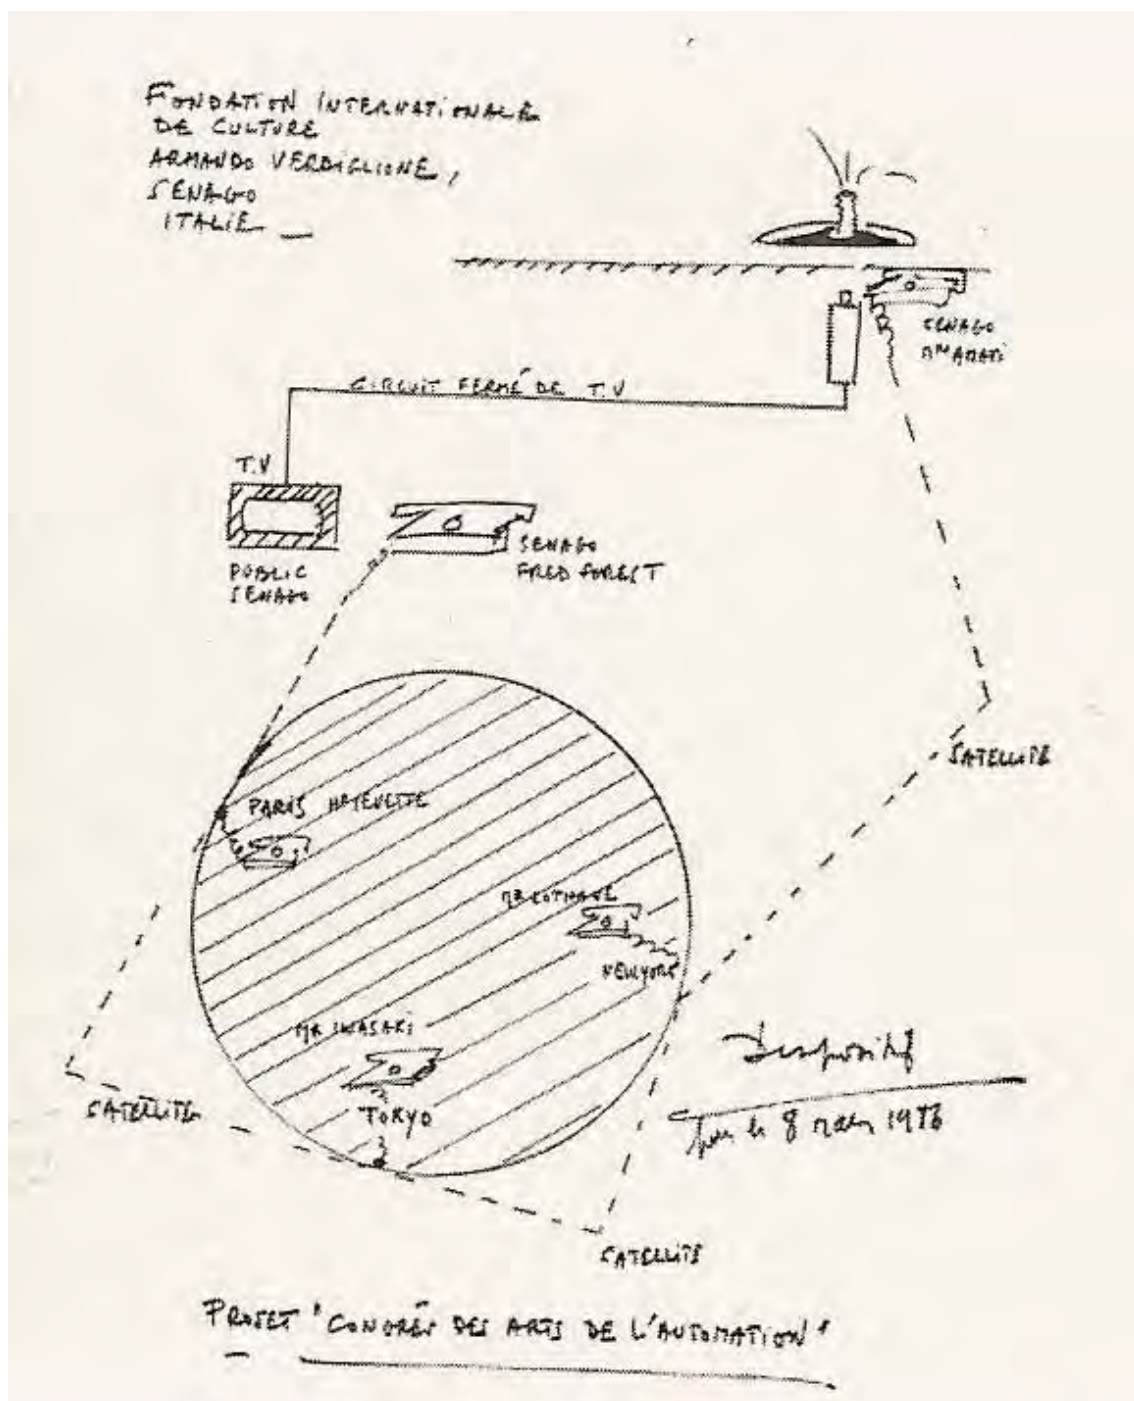 FONDATION INTERNATIONALE
DE CULTURE
ARMANDO VERDIGLIONE,
SENAGO
ITALIE
SENAGO
CIRCUIT FERMÉ DE T.V
T.V
PUBLIC
SENAGO
SENAGO
FRED FOREST
SATELLITE
PARIS
NEW YORK
MR IWASAKI
TOKYO
SATELLITE
Dispositif
pour le 8 mars 1986
SATELLITE
PROJET "CONGRÉS DES ARTS DE L'AUTOMATION"